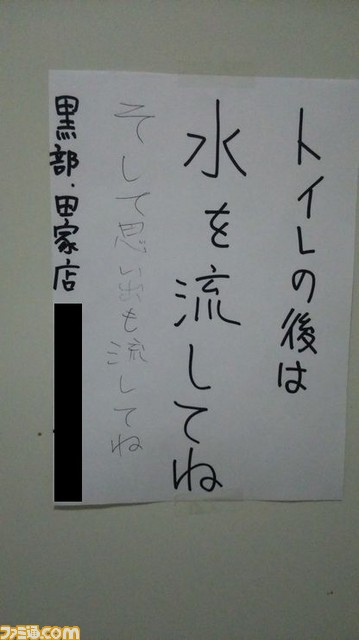 トイレの後は
水を流してね
そして思い出も流してね
黒部・田家店
ファミ通.com